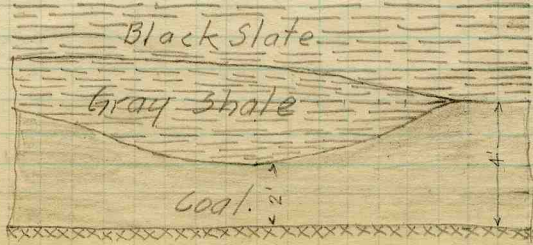 Black Slate
Gray Shale
Coal.
2'
4'